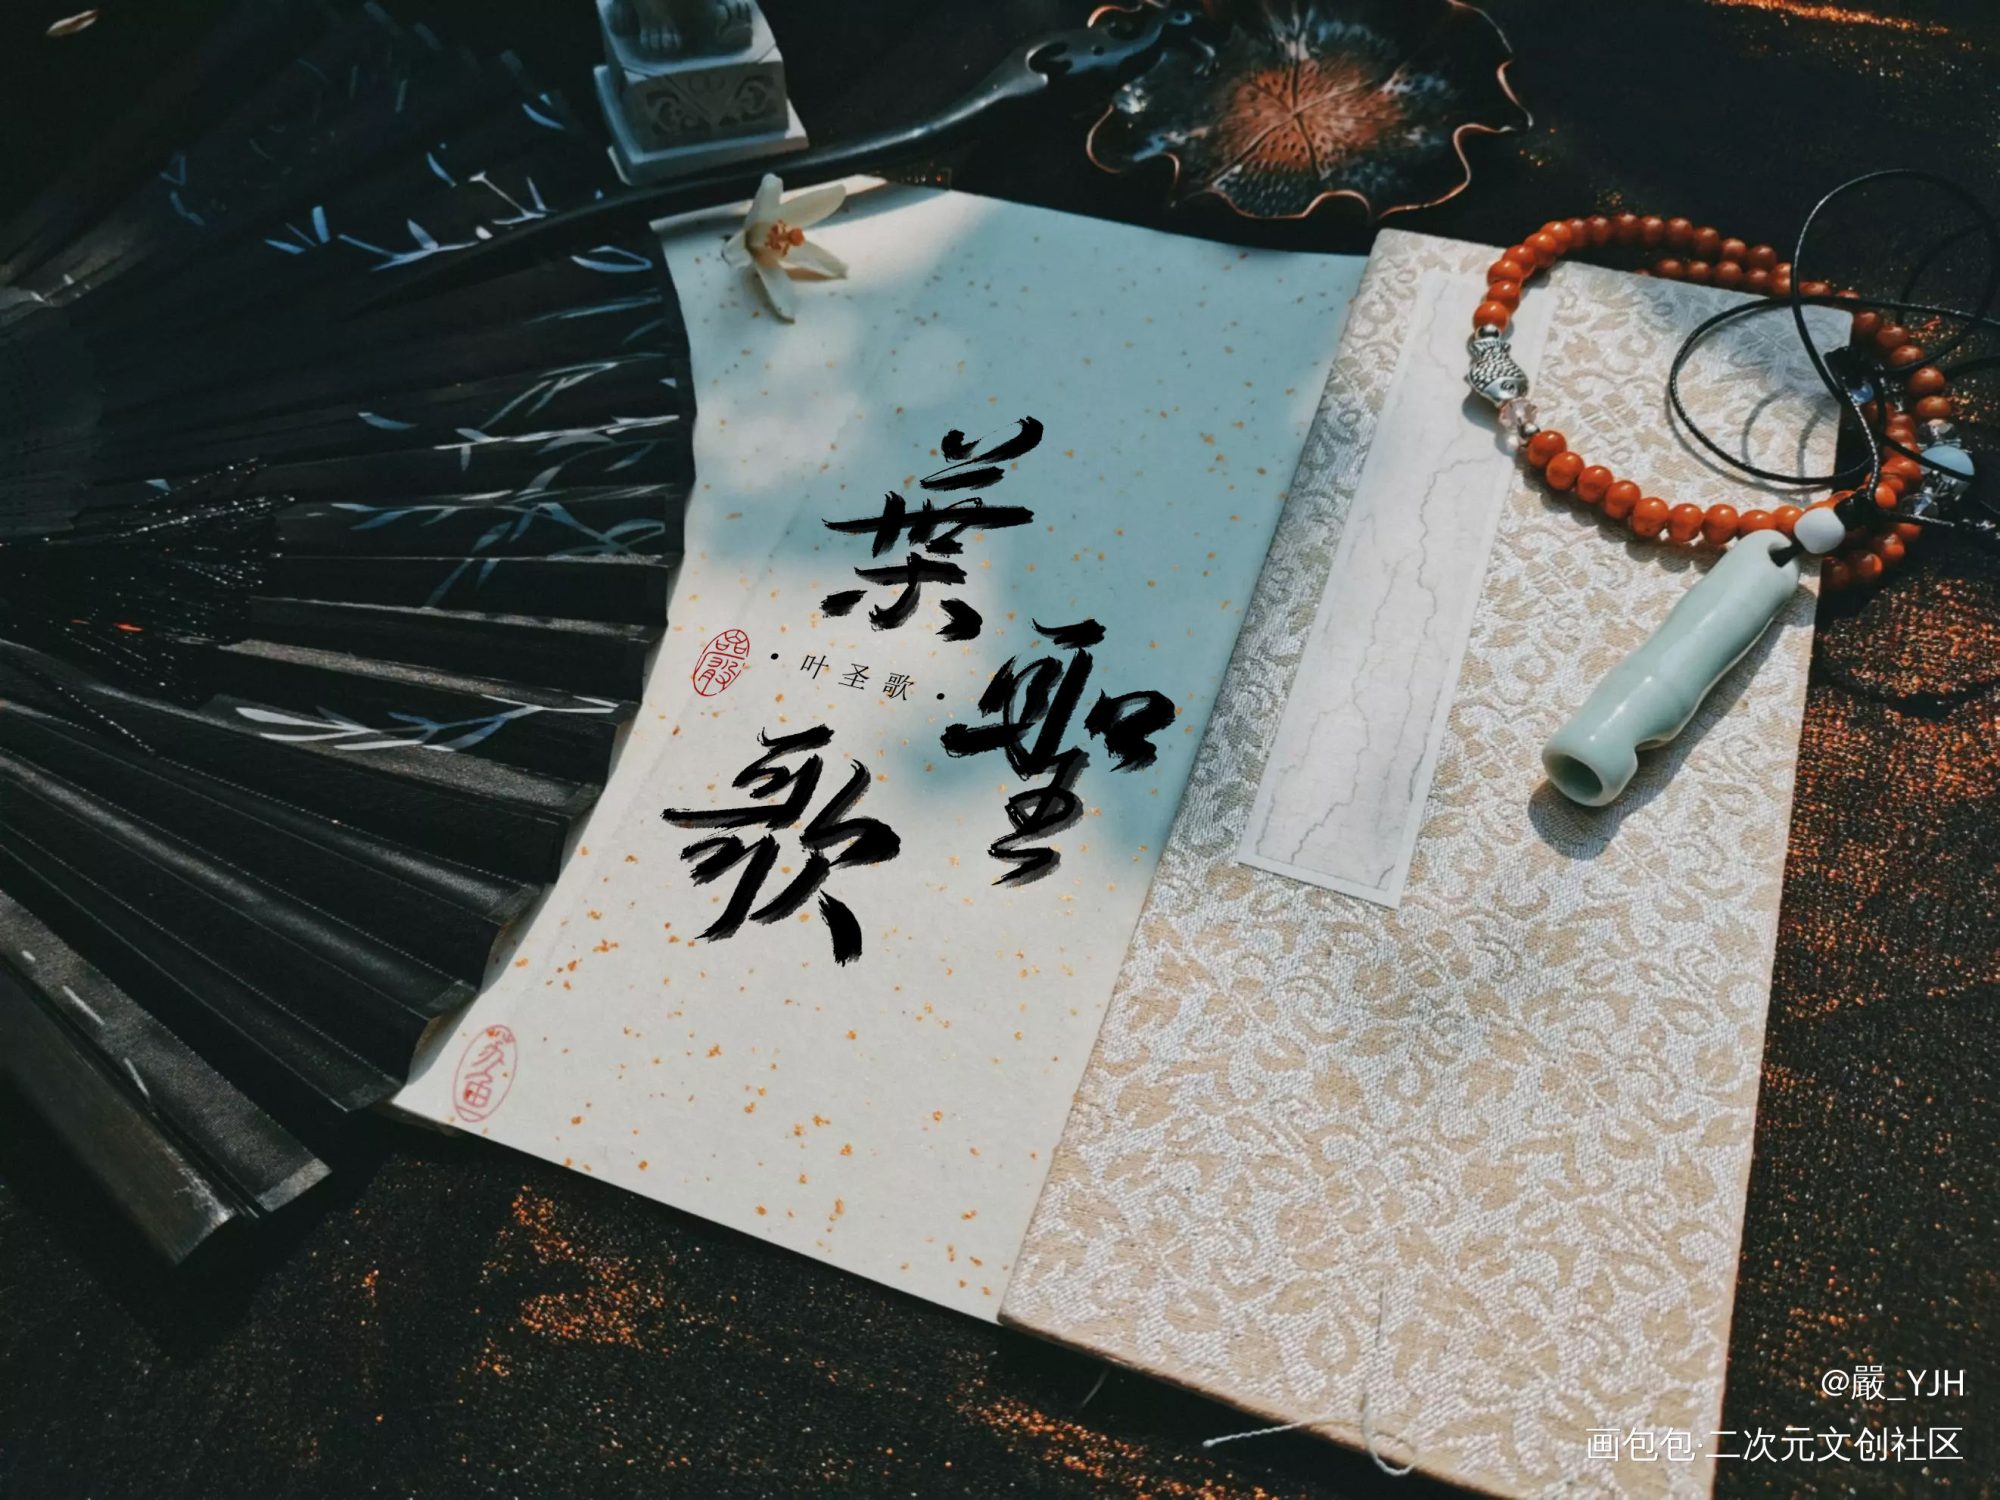 葉聖歌
· 叶圣歌 ·
@嚴_YJH
画包包·二次元文创社区